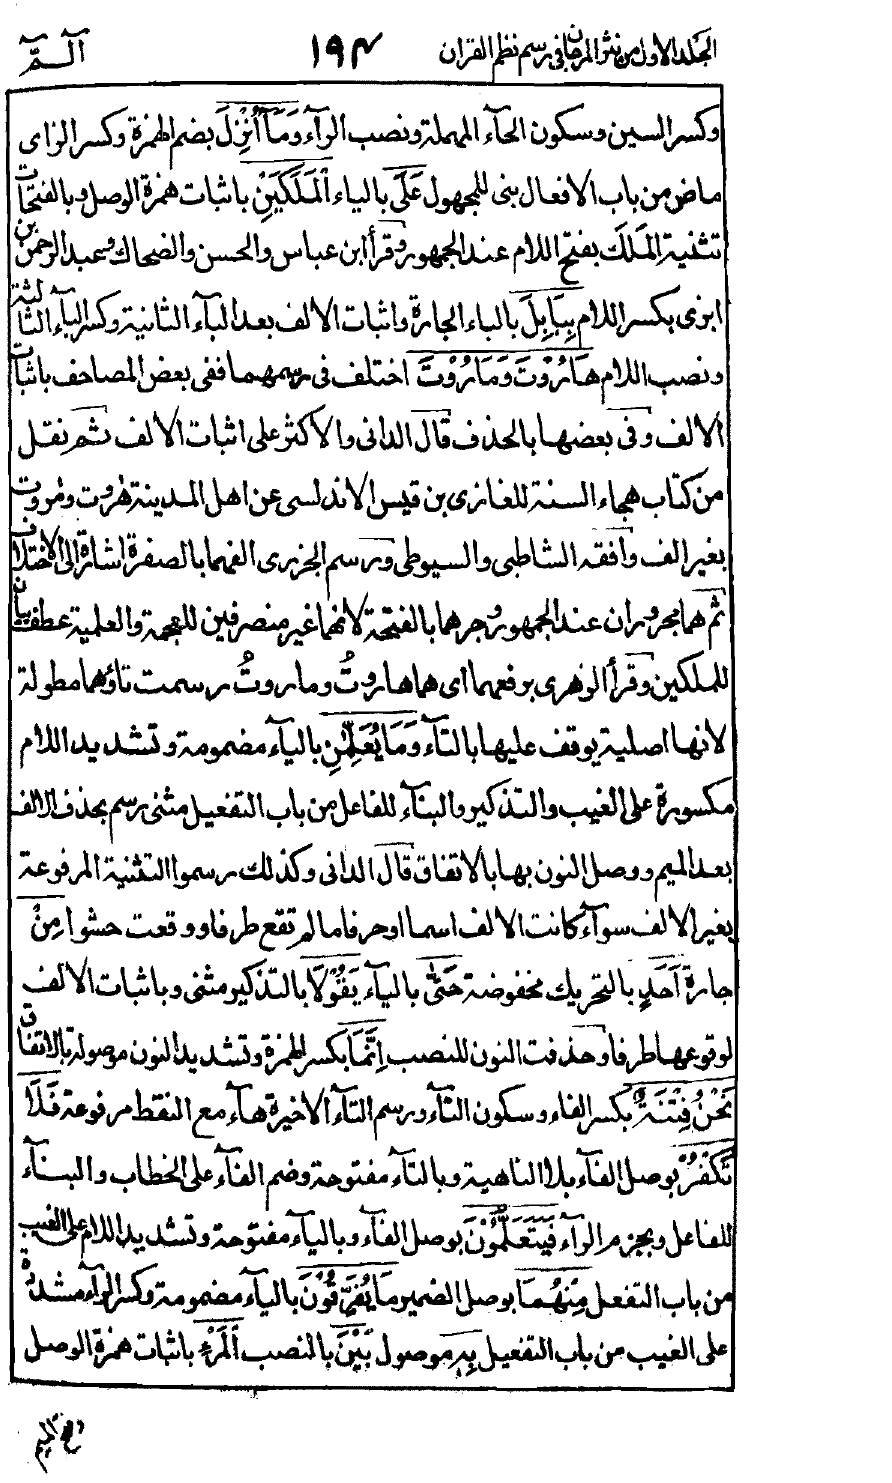 الجلد الاول من نثر المرجان فى رسم نظم القران ١٩٤ آلـمّ
وكسر السين وسكون الحآء المهملة ونصب الرآء وَمَآ أُنْزِلَ بضم الهمزة وكسر الزاى
ماض من باب الافعال بنى للمجهول عَلَى بالياء الْمَلَكَيْنِ باثبات همزة الوصل وبالفتحات
تثنية المَلَك بفتح اللام عند الجمهور وقرأ ابن عباس والحسن والضحاك وعبد الرحمن بن
ابزى بكسر اللام بِبَابِلَ بالباء الجارة واثبات الالف بعد البآء الثانية وكسر البآء الثالثة
ونصب اللام هَارُوْتَ وَمَارُوْتَ اختلف فى رسمهما ففى بعض المصاحف باثبات
الالف وفى بعضها بالحذف قال الدانى والاكثر على اثبات الالف ثم نقل
من كتاب هجاء السنة للغازى بن قيس الاندلسى عن اهل المدينة هٰروت ومٰروت
بغير الف وافقه الشاطبى والسيوطى ورسم الجزرى الفهما بالصفرة اشارة الى الاختلاف
ثم هما مجروران عند الجمهور وجرهما بالفتحة لانهما غير منصرفين للعجمة والعلمية عطف بيان
للملكين وقرأ الزهرى برفعهما اى هما هاروتُ وماروتُ رسمت تاؤهما مطولة
لانها اصلية يوقف عليها بالتآء وَمَا يُعَلِّمٰنِ بالياء مضمومة وتشديد اللام
مكسورة على الغيب والتذكير والبنآء للفاعل من باب التفعيل مثنى رسم بحذف الالف
بعد الميم ووصل النون بها بالاتفاق قال الدانى وكذلك رسموا التثنية المرفوعة
بغير الالف سوآء كانت الالف اسما او حرفا مالم تقع طرفا ووقعت حشوا مِنْ
جارة اَحَدٍ بالتحريك مخفوضة حَتّٰى بالياء يَقُوْلَا بالتذكير مثنى وباثبات الالف
لوقوعها طرفا وحذفت النون للنصب اِنَّمَا بكسر الهمزة وتشديد النون موصولة بالاتفاق
نَحْنُ فِتْنَةٌ بكسر الفاء وسكون التآء ورسم التآء الاخيرة هآء مع النقط مرفوعة فَلَا
تَكْفُرْ بوصل الفآء بلا الناهية وبالتآء مفتوحة وضم الفآء على الخطاب والبنآء
للفاعل وبجزم الرآء فَيَتَعَلَّمُوْنَ بوصل الفآء وبالياء مفتوحة وتشديد اللام على الغيب
من باب التفعل مِنْهُمَا بوصل الضمير مَا يُفَرِّقُوْنَ بالياء مضمومة وكسر الرآء مشددة
على الغيب من باب التفعيل بِهٖ موصول بَيْنَ بالنصب الْمَرْءِ باثبات همزة الوصل